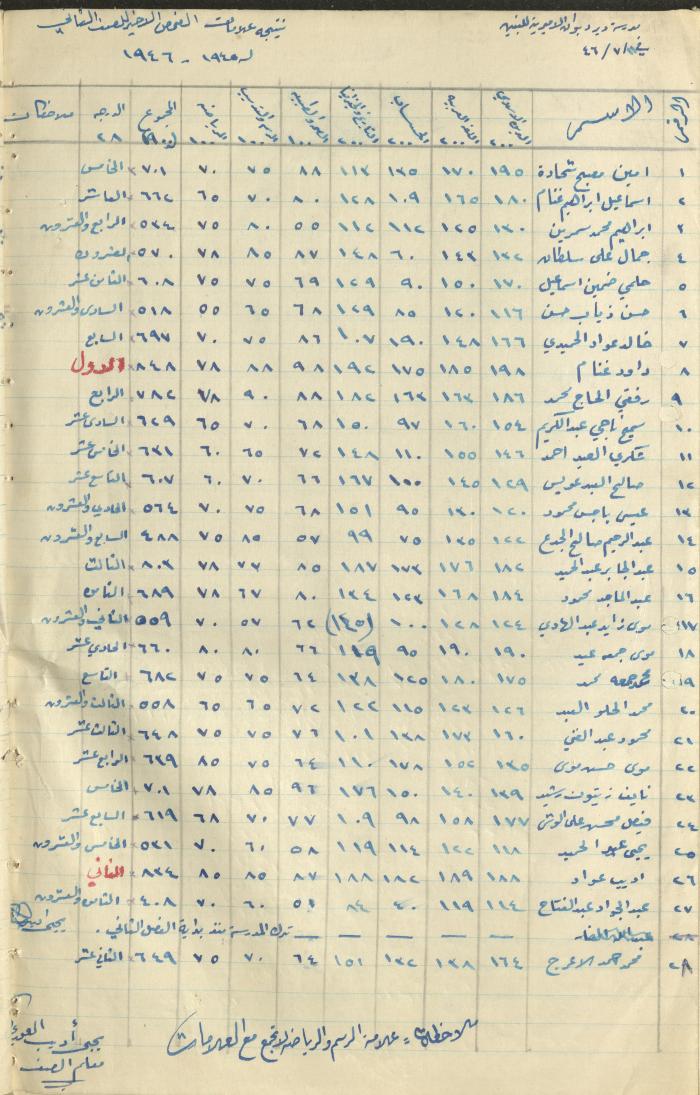 مدرسة ديردبوان الاميرية للبنين
نتيجة علامات الفحص الاخير للصف الثاني
في /٧/ ٤٦
لـ ١٩٤٥ - ١٩٤٦
الاسم الدين اللغة العربية الحساب الرياضة المجموع الدرجه ملاحظات
٢٠٠ ٢٠٠ ٢٠٠ ٢٠٠ ١٠٠ ١٠٠ ١٠٠ ٩٠٠ ٢٨
١ امين مصبح شحادة ١٩٥ ١٧٠ ١٣٥ ١١٣ ٨٨ ٧٥ ٧٠ ٧٠١ الخامس
٢ اسماعيل ابراهيم غنام ١٨٠ ١٦٥ ١٠٩ ١٢٨ ٨٠ ٧٠ ٦٥ ٦٦٢ العاشر
٣ ابراهيم محمد سمرين ١٣٠ ١٢٥ ١١٢ ١١٢ ٥٥ ٨٠ ٧٥ ٥٣٤ الرابع والعشرون
٤ جمال علي سلطان ١٣٢ ١٤٣ ٦٠ ١٤٨ ٨٧ ٨٥ ٧٨ ٥٧٠ العشرون
٥ حلمي اسماعيل ١٧٠ ١٥٠ ٩٠ ١٢٩ ٦٩ ٧٥ ٧٥ ٦٠٨ الثامن عشر
٦ حسن ذياب حسن ١١٦ ١٢٠ ٨٥ ١٢٩ ٦٨ ٦٥ ٥٥ ٥١٨ السادس والعشرون
٧ خالد عواد الحميدي ١٦٦ ١٤٨ ١٩٠ ١٠٧ ٨٦ ٧٥ ٧٠ ٦٩٧ السابع
٨ داود غنام ١٩٨ ١٨٥ ١٧٥ ١٩٢ ٩٨ ٨٨ ٧٨ ٨٤٨ الاول
٩ رفقي الحاج محمد ١٨٦ ١٦٣ ١٦٣ ١٨٢ ٨٨ ٩٠ ٦/٨ ٧٨٢ الرابع
١٠ سميح ناجي عبدالكريم ١٥٤ ١٦٠ ٩٧ ١٥٠ ٦٨ ٧٠ ٦٥ ٦٢٩ السادس عشر
١١ شكري العبد احمد ١٤٦ ١٥٥ ١١٠ ١٤٨ ٧٢ ٦٥ ٦٠ ٦٣١ الخامس عشر
١٢ صالح العبد عويس ١٢٩ ١٤٥ ١٠٠ ١٦٧ ٦٦ ٧٠ ٦٠ ٦٠٧ التاسع عشر
١٣ عيسى باجس محمود ١٢٠ ١٣٠ ٩٥ ١٥١ ٦٨ ٧٥ ٧٠ ٥٦٤ الحادي والعشرون
١٤ عبدالرحيم صالح الجدع ١٢٢ ١٣٥ ٧٥ ٩٩ ٥٧ ٨٥ ٧٥ ٤٨٨ السابع والعشرون
١٥ عبدالجابر عبدالحميد ١٨٢ ١٧٦ ١٧٣ ١٨٧ ٨٥ ٧٣ ٧٨ ٨٠٣ الثالث
١٦ عبدالماجد محمود ١٨٤ ١٦٨ ١٢٣ ١٣٤ ٨٠ ٦٧ ٧٨ ٦٨٩ الثامن
١٧ موسى زايد عبدالهادي ١٢٤ ١٢٨ ١٠٠ (١٤٥) ٦٢ ٥٧ ٧٠ ٥٥٩ الثاني والعشرون
١٨ موسى جمعه عيد ١٩٠ ١٩٠ ٩٥ ١١٩ ٦٦ ٨٠ ٨٠ ٦٦٠ الحادي عشر
١٩ محمد جمعه محمد ١٧٥ ١٨٠ ١٢٥ ١٣٨ ٦٤ ٧٥ ٧٥ ٦٨٢ التاسع
٢٠ محمد الحلو العبد ١٢٦ ١٢٣ ١١٥ ١٢٢ ٧٢ ٦٥ ٦٥ ٥٥٨ الثالث والعشرون
٢١ محمود عبد الغني ١٦٠ ١٧٣ ١٣٨ ١٠١ ٧٦ ٧٥ ٧٥ ٦٤٨ الثالث عشر
٢٢ موسى حسن موسى ١٣٥ ١٥٢ ١٧٨ ١١٠ ٦٤ ٧٥ ٨٥ ٦٣٩ الرابع عشر
٢٣ نايف زيتون رشيد ١٣٩ ١٤٠ ١٥٠ ١٧٦ ٩٦ ٨٥ ٧٨ ٧٠١ الخامس
٢٤ فيصل محسن علي ١٧٧ ١٥٨ ٩٨ ١٠٩ ٧٧ ٧٠ ٦٨ ٦١٩ السابع عشر
٢٥ يحيى عبد الحميد ١١٨ ١٢٢ ١١٤ ١١٩ ٥٨ ٦٠ ٧٠ ٥٣١ الخامس والعشرون
٢٦ اديب عواد ١٨٨ ١٨٩ ١٨٢ ١٨٨ ٨٧ ٨٥ ٨٥ ٨٣٤ الثاني
٢٧ عبدالجواد عبدالفتاح ١١٤ ١١٩ ٤٠ ٨٤ ٥١ ٦٠ ٧٠ ٤٠٨ الثامن والعشرون
٢٨ — — — — ترك المدرسة منذ بداية الفصل الثاني .
٢٨ محمد حمد الاعرج ١٦٤ ١٣٨ ١٣٢ ١٥١ ٦٤ ٧٠ ٧٥ ٦٤٩ الثاني عشر
ملاحظات = علامة الرسم والرياضه لا تجمع مع العلامات
يحيى أديب
معلم الصف